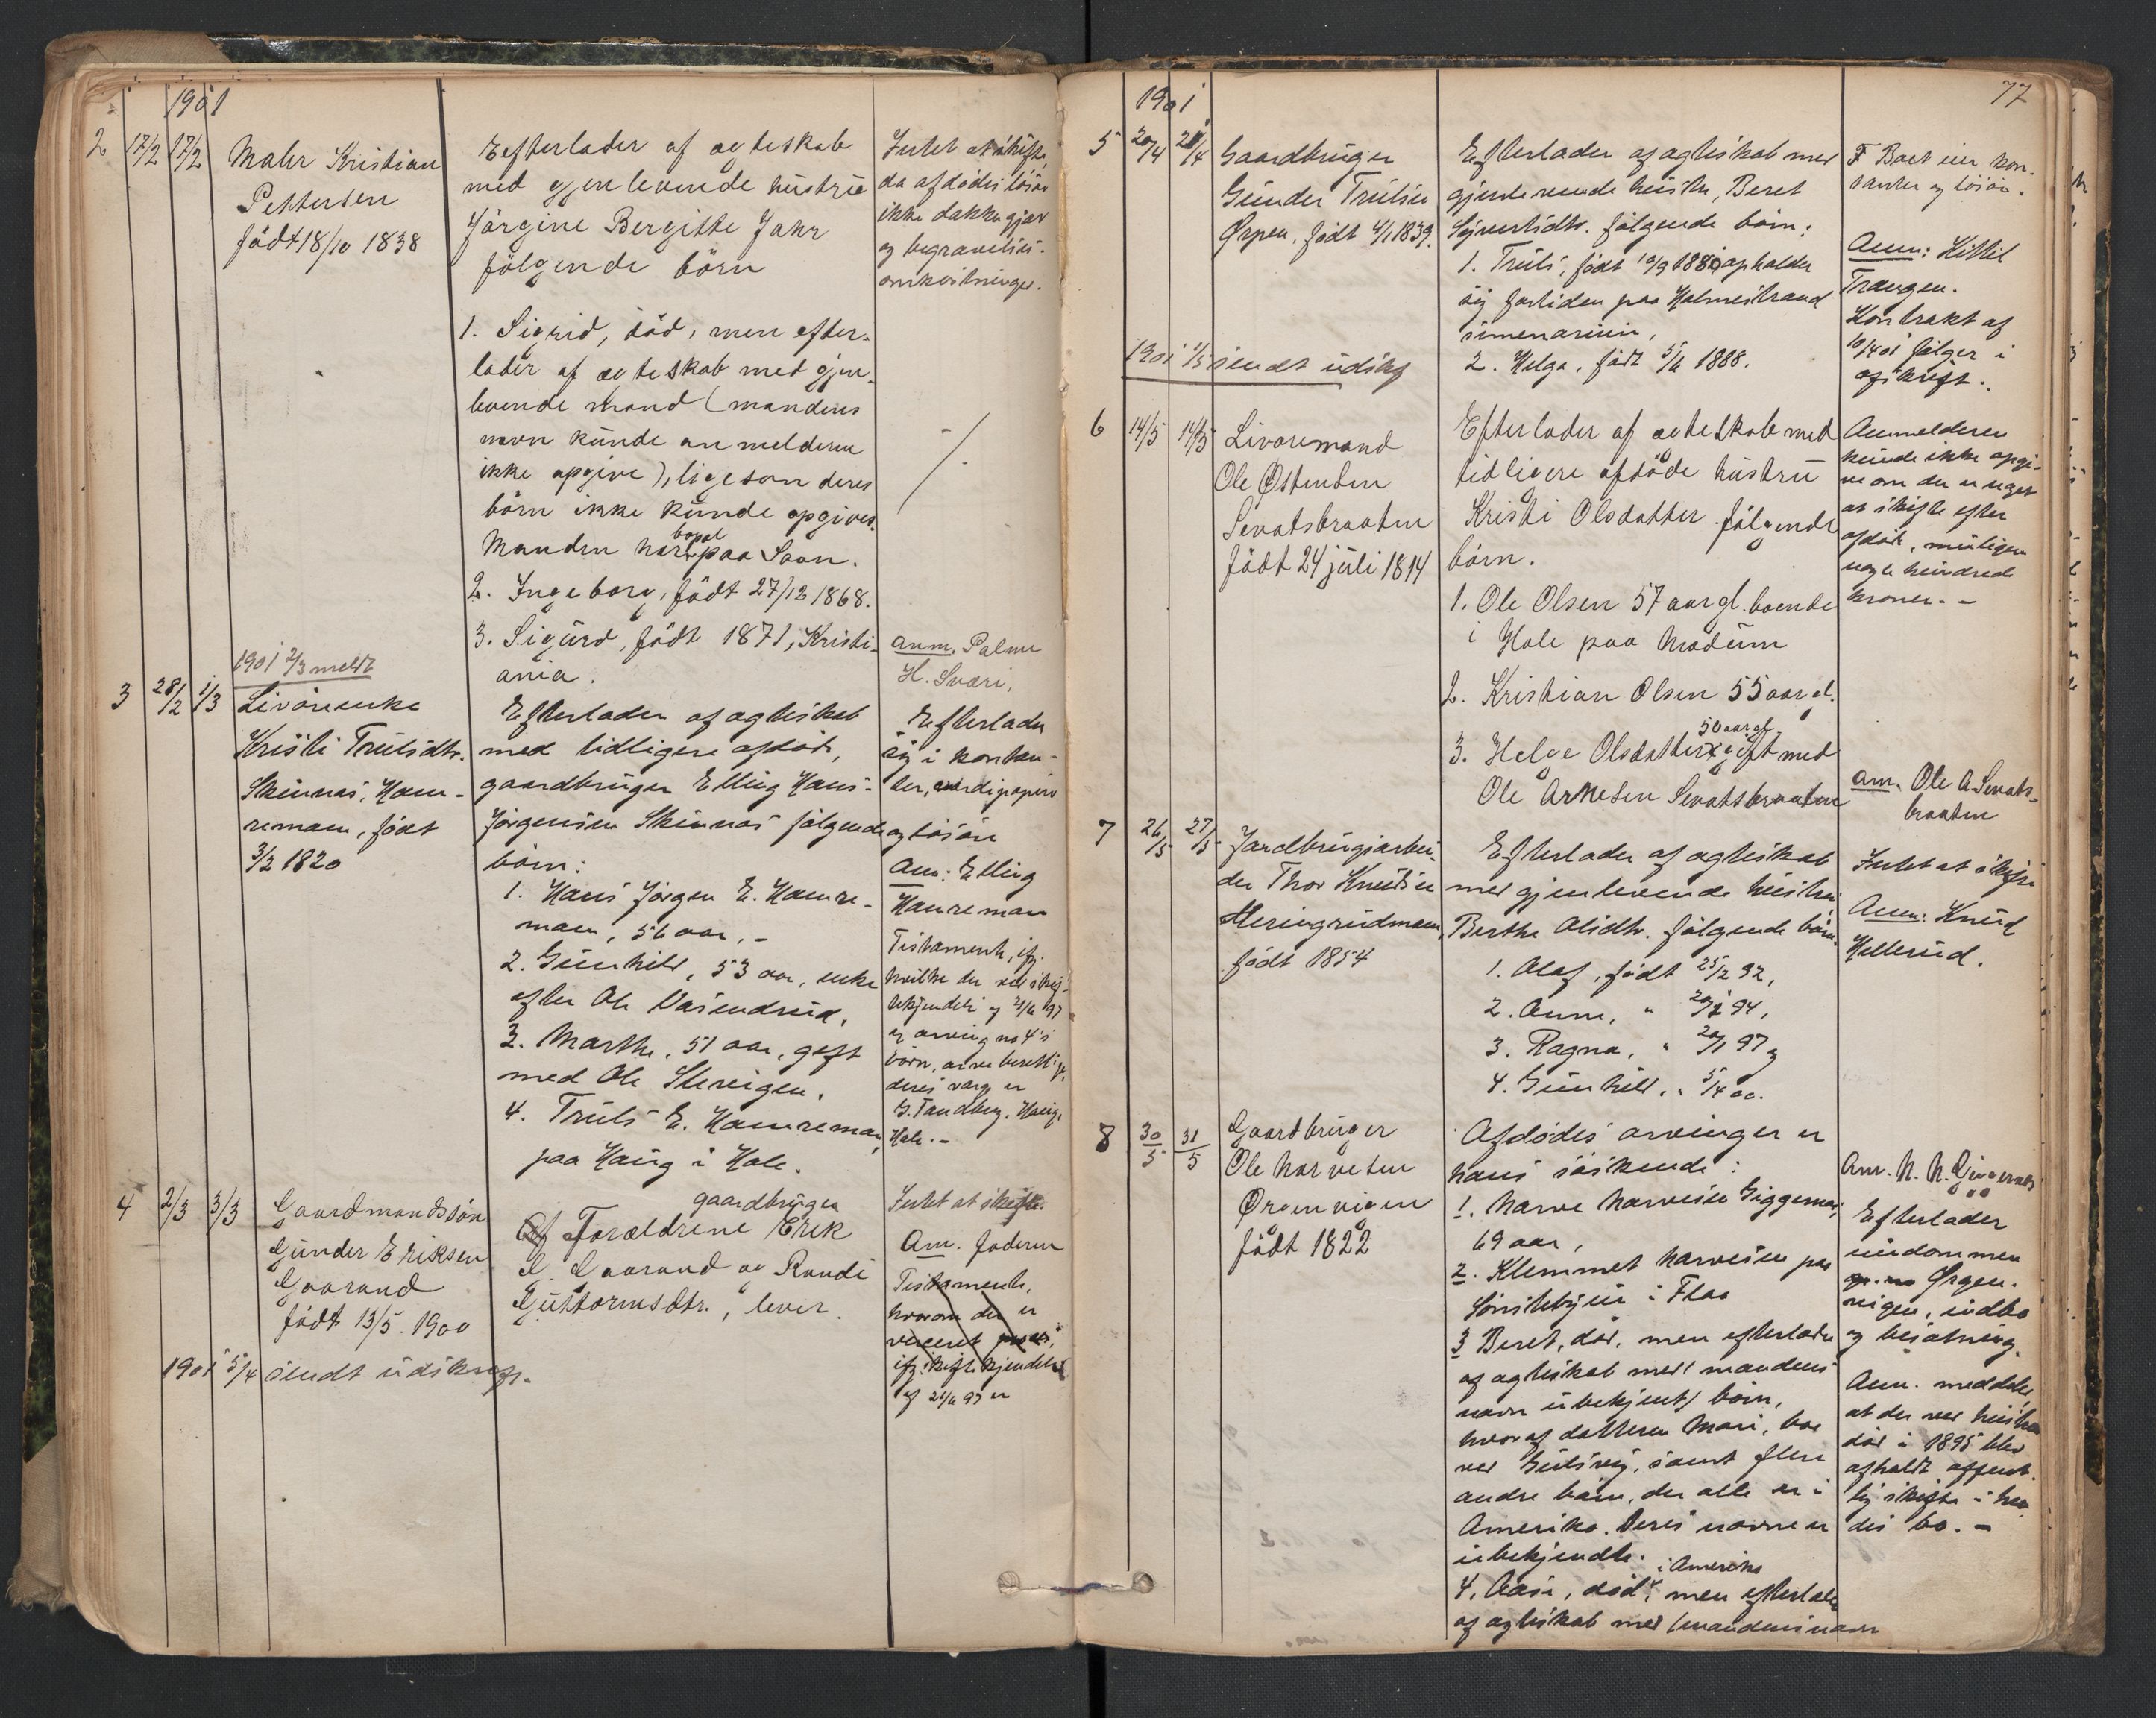 1901
2 17/2 17/2
Maler Kristian
Pettersen
född 18/10 1838
Efterlader af ægteskab
med gjenlevende hustru
Jörgine Bergitte Jahr
fölgende börn
1. Sigrid, död, men efter-
lader af ægteskab med gjen-
levende mand (mandens
navn kunde anmelderen
ikke opgive), ligesom deres
börn ikke kunde opgives.
Manden har bopæl paa Svon.
2. Ingeborg, födt 27/12 1868.
3. Sigurd, födt 1871, Kristi-
ania.
Intet at skifte,
da afdödes lösöre
ikke dækker gjæld
og begravelses-
omkostninger.
anm. Palme
H. Sværi.
1901 2/3 meldt
3 28/2 1/3
Livöreenke
Kristi Trulsdtr.
Skinnæs, Hamre-
remoen, födt
3/2 1820
Efterlader af ægteskab
med tidligere afdöde,
gaardbruger Elling Hans-
Jörgensen Skinnæs fölgende
börn:
1. Hans Jörgen E. Hamre-
moen, 56 aar, -
2. Gunhild, 53 aar, enke
efter Ole Vasendrud,
3. Marthe, 51 aar, gift
med Ole Sleveigen,
4. Truls E. Hamremoen,
paa Haug i Hole.
Efterlader
sig i kontan-
ter, værdipapirer
og lösöre
Anm: Elling
Hamremoen
Testamente, ifg.
hvilke der ved skifte-
kjendelse af 21/6 97
er arving no 4's
börn, arveberettig.
deres værge er
G. Tandberg, Haug,
Hole. -
4 2/3 3/3
Gaardmandssön
Gunder Eriksen
Gaarand
födt 13/5. 1900
Af Forældrene gaardbruger Erik
G. Gaarand og Randi
Guttormsdtr., lever.
Intet at skifte.
Am. faderen
Testamente,
hvorom der er
ifg. skiftekjendelse
af 21/6 97 er
1901 5/4 sendt udskrift.
77
1901
5 20/4 20/4
Gaardbruger
Gunder Trulsen
Ørpen, födt 4/1 1839.
Efterlader af ægteskab med
gjenlevende hustru, Beret
Syvertsdtr. fölgende börn:
1. Truls, födt 10/9 1880, opholder
sig fortiden paa Holmestrand
simenarium,
2. Helga, födt 5/6 1888.
F Boet eier kon-
tanter og lösöre.
Anm: Kittil
Trangen.
Kontrakt af
10/4 01 fölger i
afskrift.
1901 1/5 sendt udskr
6 14/5 14/5
Livöremand
Ole Østensen
Sevatsbraaten
födt 24 juli 1814
Efterlader af ægteskab med
tidligere afdöde hustru
Kristi Olsdatter fölgende
börn.
1. Ole Olsen 57 aar gl. boende
i Hole paa Modum
2. Kristian Olsen 55 aar gl.
3. Helge Olsdatter 50 aar gl. gift med
Ole Arnesen Sevatsbraaten
Anmelderen
kunde ikke opgi-
ve om der er noget
at skifte efter
afdöde, muligens
nogle hundrede
kroner. -
am. Ole A. Sevats-
braaten
7 26/5 27/5
Jordbrugsarbei-
der Thor Knudsen
Heringrudmoen,
födt 1854
Efterlader af ægteskab
med gjenlevende hustru,
Berthe Olsdtr. fölgende börn.
1. Olaf, födt 25/2 92,
2. Anne, " 20/2 94,
3. Ragna, " 20/1 97 og
4. Gunhild, " 5/4 00.
Intet at skifte
Anm: Knud
Hellerud.
8 30/5 31/5
Gaardbruger
Ole Narvesen
Ørgenvigen
födt 1822
Afdödes arvinger er
hans söskende:
1. Narve Narvesen Giggernæs,
69 aar,
2. Klemmet Narvesen paa
Sönstebyeie i Flaa
3 Beret, död, men efterlader
af ægteskab med mandens
navn ubekjent) börn,
hvoraf datteren Mari, bor
ved Gulsvig, samt flere
andre börn, der alle er i
Amerika. Deres navne er
ubekjendte.
4. Aase, död i Amerika, men efterlader
af ægteskab med (mandens navn
Am. N. N. Giggernæs
Efterlader
eiendommen
Ørgen-
vigen, indbo
og besætning.
Anm. meddeler
at der ved hustrus
död i 1895 blev
afholdt offent-
lig skifte i hen
des bo. -